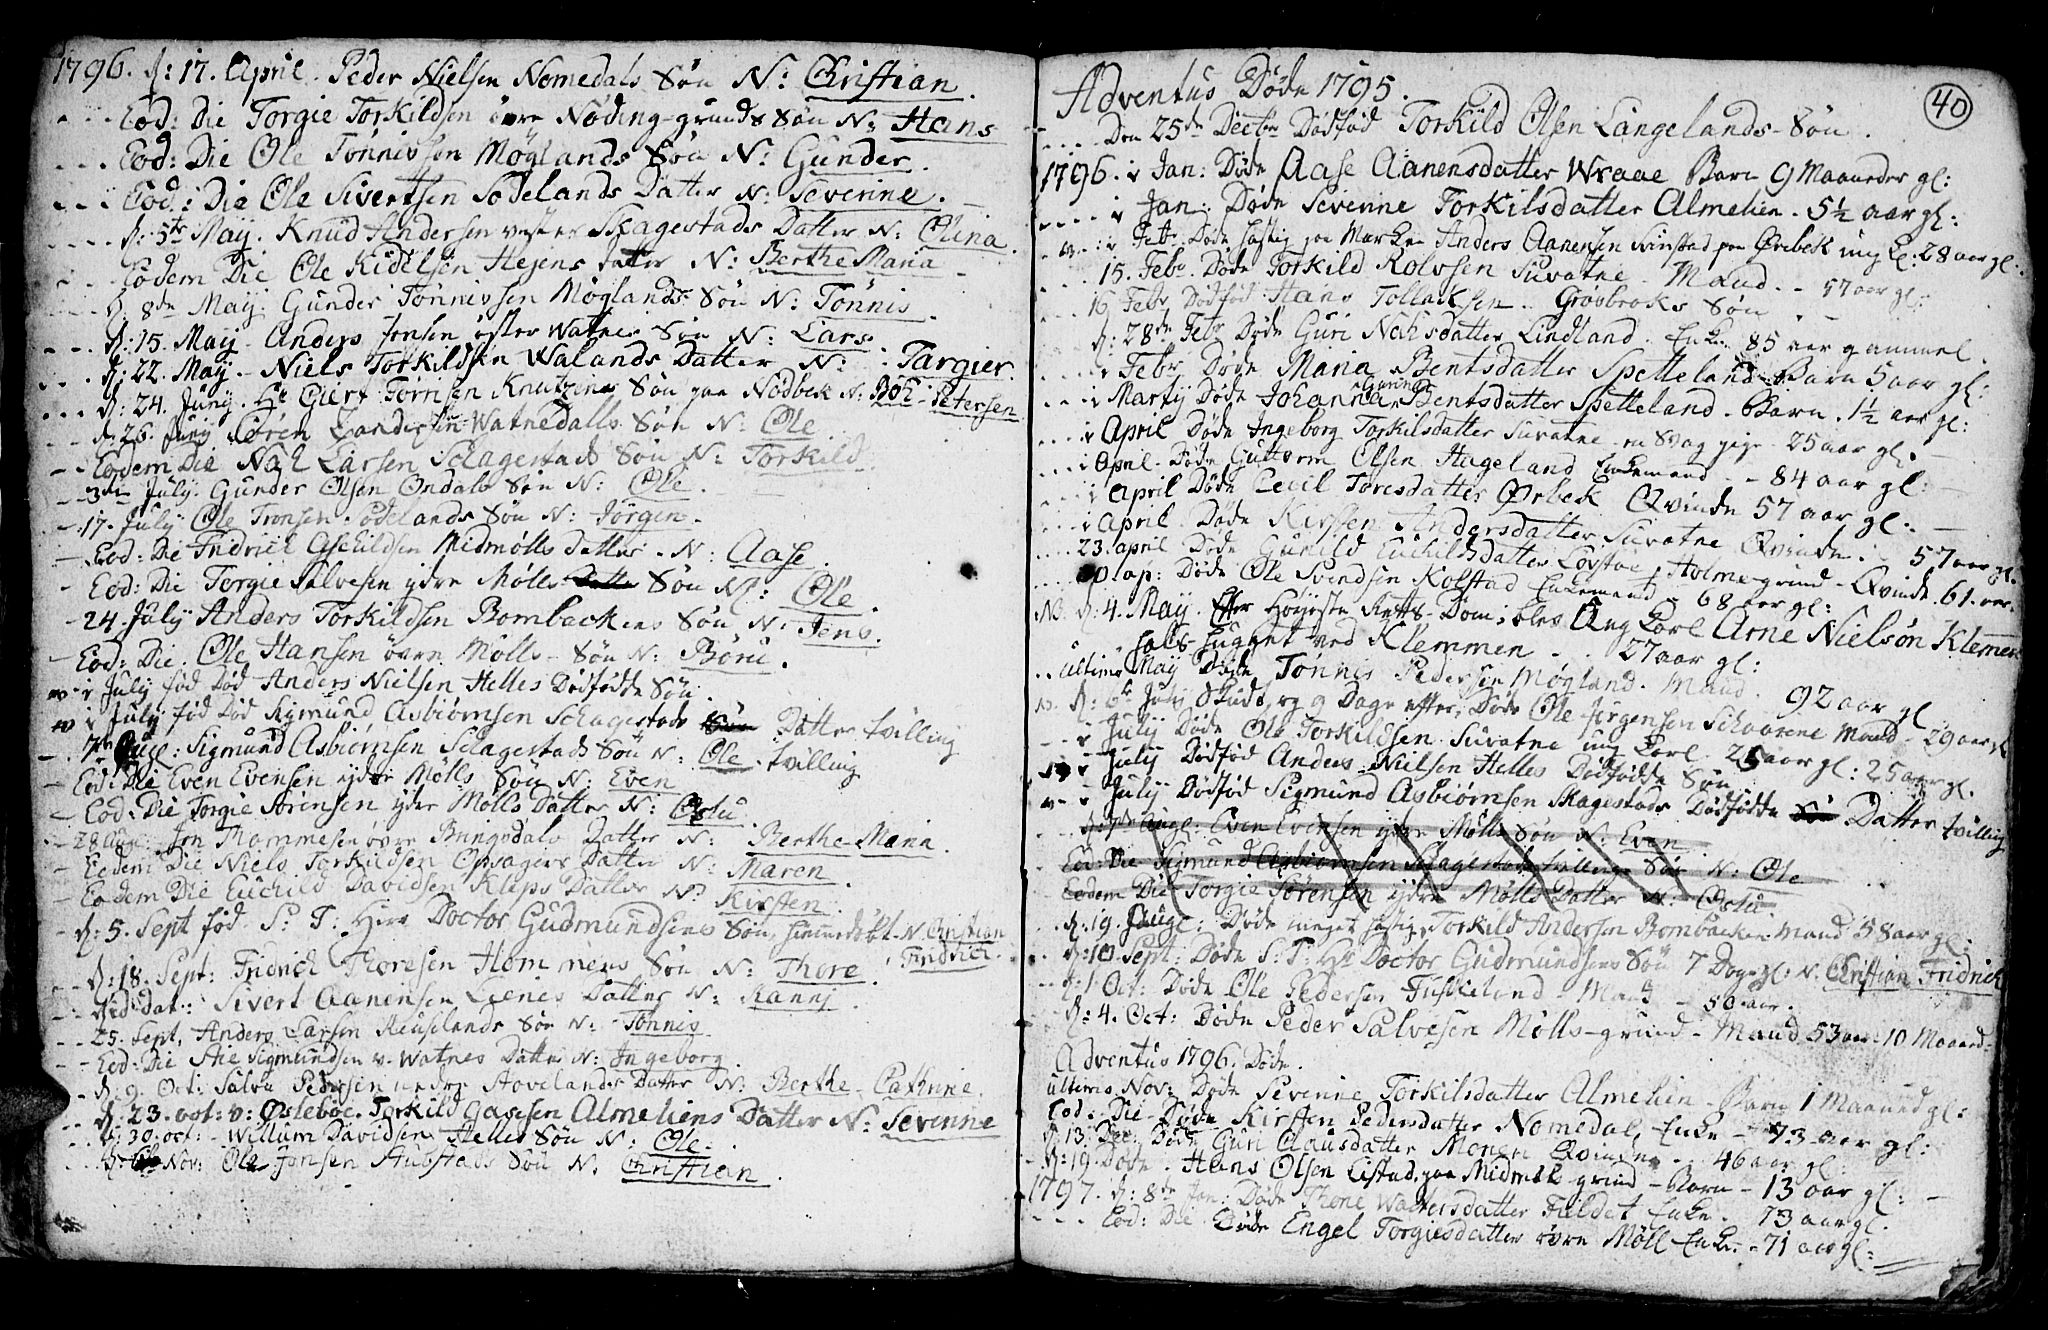 1796. d: 17. April. Peder Nielsen Nomedals Søn N: Christian.
Eod: Die Torgie Torkildsen övre Nöding-grunds Søn N: Hans
Eod: Die Ole Tønnissen Møglands Søn N: Gunder.
Eod: Die Ole Sivertsen Sødelands Datter N: Severine.
d: 5te May. Knud Andersen vester Skagestads Datter N: Olina.
Eodem Die Ole Kidelsen Hejens Datter N: Berthe Maria
d: 8de May. Gunder Tønnissen Møglands Søn N: Tønnis.
d: 15. May. Anders Jensen öster Watnes Søn N: Lars.
d: 22. May. Niels Torkildsen Walands Datter N: Targier.
d: 24. Juny. Hr Giert Tørrisen Knutzens Søn paa Nodbek N: Boh-Petersen
d. 26. Juny Søren Zanders Watnedalls Søn N: Ole.
Eodem Die Nah Larsen Schagestads Søn N: Torkild.
3die July. Gunder Olsen Ondals Søn N: Ole.
17. July Ole Tronsen Sødelands Søn N: Jørgen.
Eod: Die Fridrich Aschildsen Midmølls Datter N: Aase.
Eod: Die Torgie Salvesen ydre Mølls Datter Søn N: Ole
24. July Anders Torkildsen Bombackens Søn N: Jens.
Eod: Die. Ole Hansen övre Mølls Søn N: Børu.
i July fød Død Anders Nielsen Helles Dødfødde Søn.
i July fød Død Sigmund Asbiørnsen Schagestads Søn Datter tvilling
7de Augl: Sigmund Asbiørnsen Schagestads Søn N: Ole. tvilling
Eod: Die Even Evensen ydre Mølls Søn N: Even
Eod: Die Torgie Sørensen ydre Mølls Datter N: Oslu
28 Augl. Jon Thommesen övre Bringsdals Datter N: Berthe-Maria.
Eodem Die Niels Torkildsen Opsagers Datter N: Maren
Eodem Die Euchild Davidsen Kleps Datter N: Kirsten.
d: 5. Sept fød S: T: Herr Doctor Gudmundsens Søn, hiemmedøbt N. Christian Fridrich.
d: 18. Sept: Fridrich Thoresen Hommens Søn N: Thore.
Sivert Aanensen Lienes Datter N: Ranni.
25. Sept, Anders Larsen Reuselands Søn N: Tønnis
Eod: Die Aie Sigmundsen v. Watnes Datter N: Ingeborg.
d. 9. Oct: Salve Pedersen nedre Aavelands Datter N: Berthe-Cathrine.
d. 23. oct: v: Øslebøe. Torkild Gasesen Almeliens Datter N: Severine
d: 30. oct: Willum Davidsen Helles Søn N: Ole.
Nov: Ole Jonsen Aubstads Søn N: Christian.
40
Adventus Døde 1795.
Den 25de Decbr Dødfød Torkild Olsen Langelands Søn.
1796. i Jan: Døde Aase Aanensdatter Wraae Barn 9 Maaneder gl:
i Jan: Døde Severine Torkilsdatter Almelien. 5½ aar gl:
i Febr. Døde hastig paa Marken Anders Aanensen Svinstad paa Ørebek ung K: 28 aar gl:
15. Febr. Døde Torkild Rolvsen Suvatne Mand. 57 aar gl:
16 Febr Dødfød Hans Tollacksen Grosbroks Søn
d: 28de Febr Døde Guri Nahsdatter Lindland. Enke 85 aar gammel.
i Febr Døde Maria Bentsdatter Spetteland Barn 5 aar gl:
i Marty Døde Johanna Gurina Bentsdatter Spetteland. Barn. 1½ aar gl:
i April Døde Ingeborg Torkilsdatter Suvatne en Svag pige 25 aar gl.
i April. Døde Guttorm Olsen Hageland Enkemand 84 aar gl:
i April Døde Cecil Toresdatter Ørbek Qvinde 57 aar gl:
i April. Døde Kirsten Andersdatter Suvatne Qvinde. 57 aar gl.
23. april Døde Gunild Euchildsdatter Lovstøe, Holme-grind Qvinde. 61. aar.
ap: Døde Ole Svendsen Kolstad Enkemand 68 aar gl:
N. d: 4. May. Efter Høyeste Retts-Dom, blev Ung Karl Arne Nielsøn Klemmen
hals-hugget ved Klemmen 27 aar gl:
ultimo May Døde Tønnis Pedersen Møgland. Mand. 92 aar gl
July Skudt, og 9 Dage efter, Døde Ole Jørgensen Schaarene Mand 29 aar gl
i July Døde Ole Torkildsen Suvatne ung Karl 25 aar gl: 25 aar gl.
i July Dødfød Anders Nielsen Helles Dødfødde Søn
i July Dødfød Sigmund Asbiørnsen Skagestads Dødfødde Sø Datter tvilling
d: 7de Augl: Even Evensen ydre Mølls Søn N: Even
Eod: Die Sigmund Asbiørnsen Schagestads tvilling Søn N: Ole
Eodem Die Torgie Sørensen ydre Mølls Datter N: Oslu.
d. 19. Augl: Døde meget hastig Torkild Andersen Bombacken Mand 58 aar gl.
d: 10. Sept: Døde S: T: Hr Doctor Gudmundsens Søn 7 Dage gl: N. Christian Fridrich
d: 1 Oct: Døde Ole Pedersen Fuskeland Mand 50 aar.
d: 4. Oct: Døde Peder Salvesen Mølls-grund Mand 53 aar 10 Maaned
Adventus 1796. Døde.
ultimo Nov: Døde Severine Torkilsdatter Almelien Barn 1 Maaned gl:
Eod: Die Døde Kirsten Pedersdatter Nomedal, Enke 73 aar gl:
d. 13. Dec: Døde Guri Clausdatter Monen Qvinde 46 aar gl:
d: 19. Døde Hans Olsen Eistad, paa Midmøll-grind Barn 13 aar gl:
1797. d: 8de Jan: Døde Thone Waltersdatter Fuldet Enke. 73 aar gl.
Eod: Die Døde Engel Torgiesdatter övre Møll Enke. 71 aar gl: